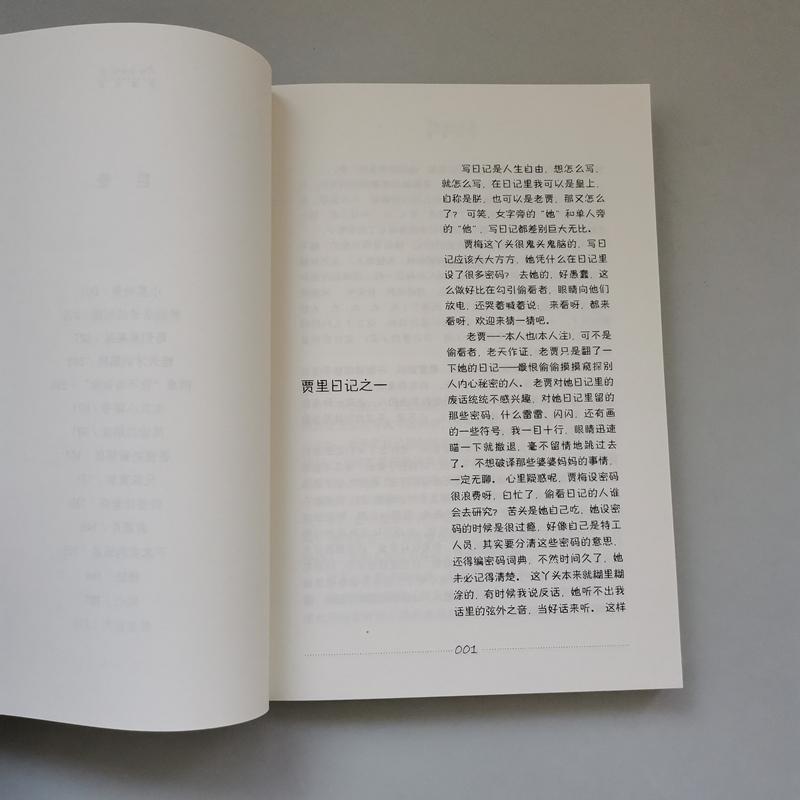 贾里日记之一
写日记是人生自由，想怎么写，
就怎么写，在日记里我可以是皇上，
自称是朕，也可以是老贾，那又怎么
了？可笑，女字旁的“她”和单人旁
的“他”，写日记都差别巨大无比。
贾梅这丫头很鬼头鬼脑的，写日
记应该大大方方，她凭什么在日记里
设了很多密码？去她的，好愚蠢，这
么做好比在勾引偷看者，眼睛向他们
放电，还哭着喊着说：来看呀，都来
看呀，欢迎来猜一猜吧。
老贾——本人也(本人注)，可不是
偷看者，老天作证，老贾只是翻了一
下她的日记——最恨偷偷摸摸窥探别
人内心秘密的人。老贾对她日记里的
废话统统不感兴趣，对她日记里留的
那些密码，什么雷雷、闪闪，还有画
的一些符号，我一目十行，眼睛迅速
瞄一下就撤退，毫不留情地跳过去
了。不想破译那些婆婆妈妈的事情，
一定无聊。心里疑惑呢，贾梅设密码
很浪费呀，白忙了，偷看日记的人谁
会去研究？苦头是她自己吃，她设密
码的时候是很过瘾，好像自己是特工
人员，其实要分清这些密码的意思，
还得编密码词典，不然时间久了，她
未必记得清楚。这丫头本来就糊里糊
涂的，有时候我说反话，她听不出我
话里的弦外之音，当好话来听。这样
001